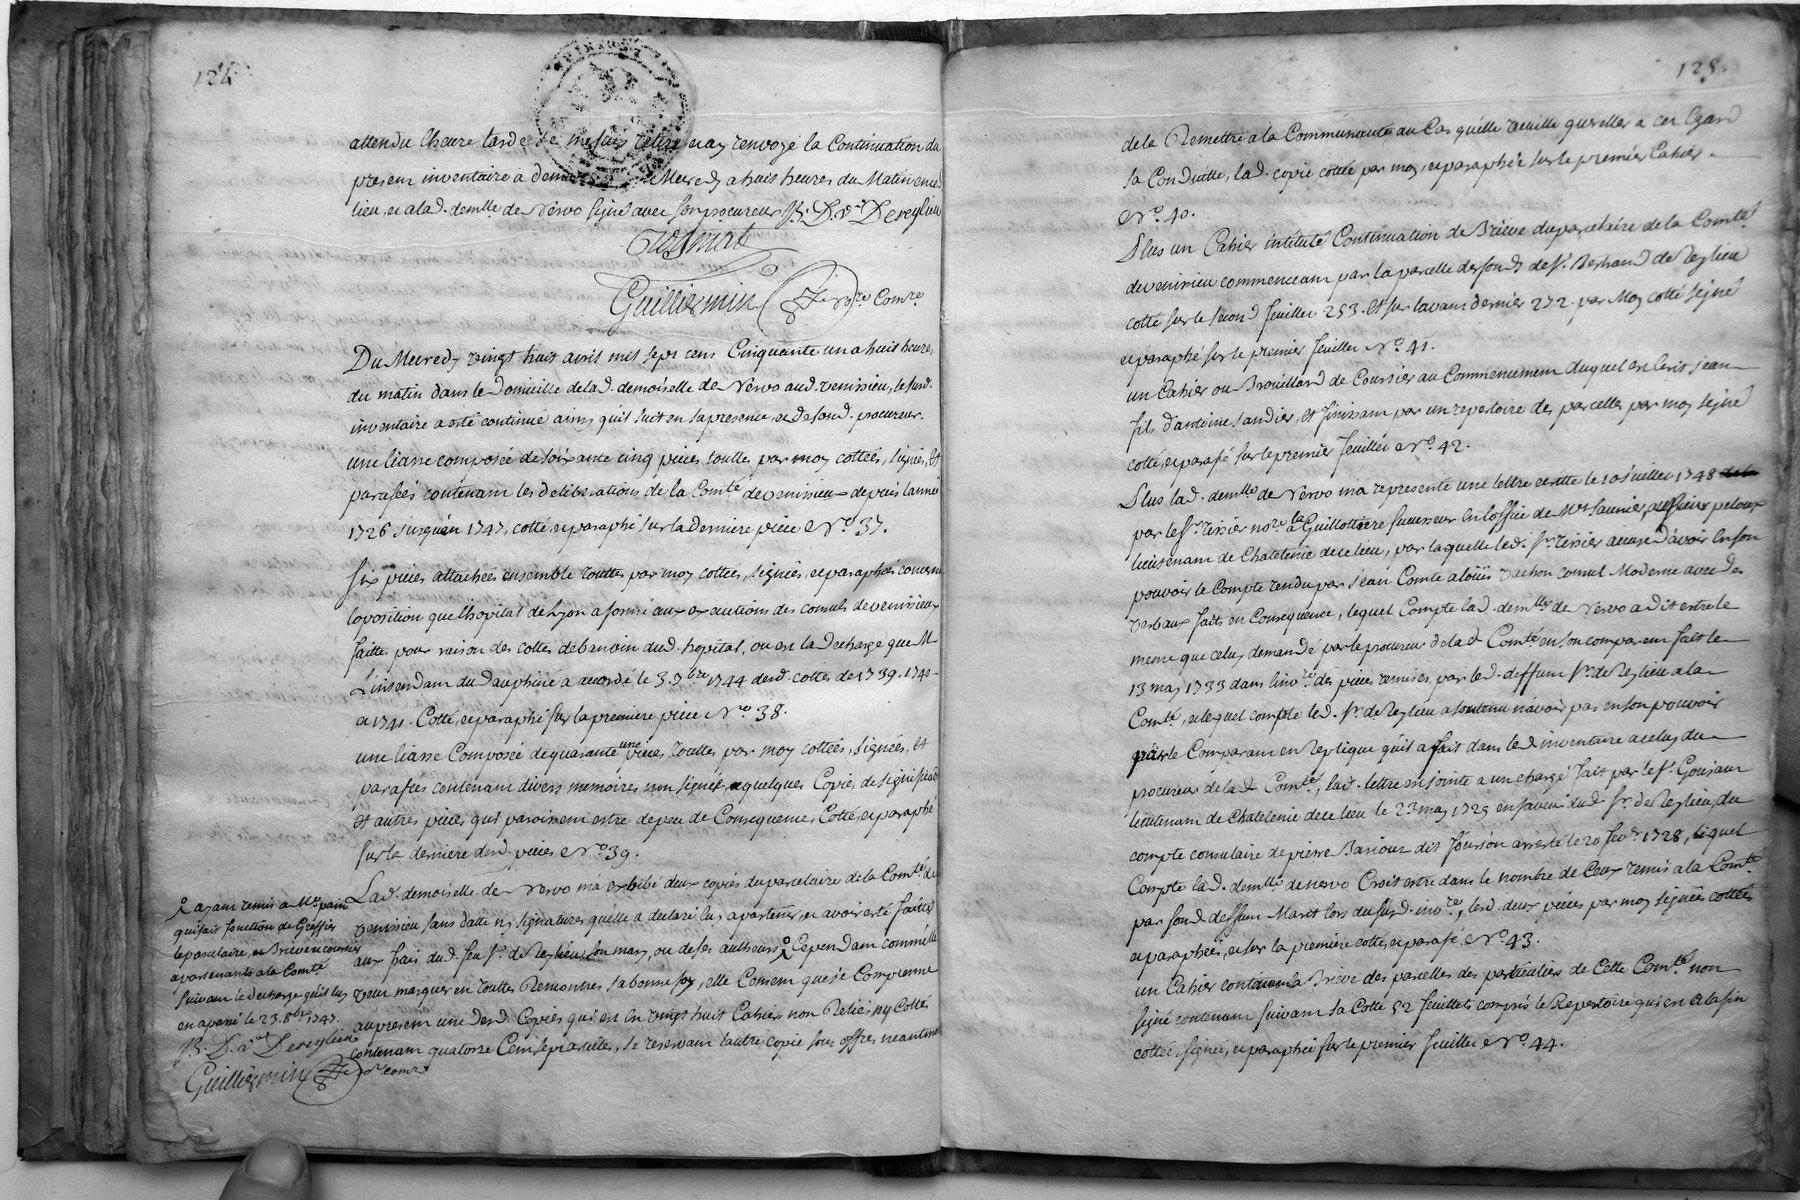 124.
attendu lheure tarde de mesuis retiré et ay renvoyé la Continuation du
present inventaire a demain Mercredy a huit heures du Matin en ce
lieu, et a lad. demlle de Nervo signé avec son procureur B: D. ve Dereylieu
Guilliermin nore Comre
Du Mercredy vingt huit avril mil sept cent Cinquante un a huit heures
du matin dans le Domicille de lad. demoiselle de Nervo aud. venissieu, le susd.
inventaire a esté continué ainsy quil suit en sa presence, et de sond. procureur.
une liasse composée de soixante cinq pieces touttes par moy cottées, signées, et
parafées contenant les deliberations de la Comté de venissieux depuis lannée
1726 jusquen 1747, cotté, et paraphé sur la derniere piece No 37.
Six pieces attachées ensemble touttes par moy cottées, signées, et paraphées concernant
loposition que lhopital de Lyon a formé aux exactions des consuls de venissieux
faittes pour raison des cottes de benoin dud. hopital, ou est la decharge que Mr
Lintendant du Dauphiné a accordé le 3. 7bre 1744 desd. cottes de 1739. 1740
et 1741. Cotté, et paraphé sur la premiere piece No 38.
une liasse Composée de quarante une pieces touttes par moy cottées, signées, et
parafées contenant divers memoires non signés, et quelques Copies de signiffications
et autres pieces qui paroissent estre de peu de Consequence, Cotté, et paraphé
sur la derniere desd. pieces No 39.
Lad. demoiselle de Nervo ma exhibé deux copies du parcelaire de la Comté de
venissieu sans datte ny signatures quelle a declaré luy apartenir, et avoir esté faittes
aux frais dud. feu sr. de Reylieu son mary, ou de ses autheurs, Cependant comme elle
veut marquer en touttes Rencontres sa bonne foy, elle Consent que je Comprenne
au present une desd. Copies qui est en vingt huit Cahiers non Reliés, ny Cotté
contenant quatorze Cent sept articles, se reservant lautre copie sous offres neantmoins
ayant remis a Me pain
qui fait fonction de Greffier
le parcelaire, et Brieve en coursier
apartenants a la Comté
suivant le decharge quil luy
en a passé le 23. 8bre 1747.
B: D. ve Dereylieu
Guilliermin nore comre
125.
de la Remettre a la Communauté au Cas quelle veuille quereller a cet Egard
sa Conduitte, lad. copie cottée par moy, et paraphée sur le premier Cahier
No 40.
Plus un Cahier intitulé Continuation de Brieve du parcelaire de la Comté
de venissieu commencant par la parcelle des fonds de sr. Bertrand de Reylieu
cotté sur le second feuillet 253. et sur lavant dernier 272. par Moy cotté signé
et paraphé sur le premier feuillet No 41.
un Cahier ou Brouillard de Coursier au Commencement duquel est Ecrit jean
fils d'antoine Sandier, et finissant par un repertoire des parcelles par moy signé
cotté, et parafé sur le premier feuillet No 42.
Plus lad. demlle de Nervo ma representé une lettre ecritte le 10 juillet 1748
par le sr. tissier nore a la Guillottiere successeur en loffice de Me Saunier, au sieur peloux
lieutenant de Chatelenie de ce lieu, par laquelle led. sr. tissier accuse d'avoir en son
pouvoir le Compte rendu par jean Comte a loüis vachon consul Moderne avec des
verbaux faits en Consequence, lequel Compte lad. demlle de Nervo a dit estre le
meme que celuy demandé par le procureur de lad. Comté en son comparant fait le
13 may 1733 dans linvre des pieces remises par led. deffunt sr. de Reylieu a la
Comté, et lequel compte led. sr. de Reylieu a soutenu n'avoir pas en son pouvoir
par le Comparant en Replique quil a fait dans led. inventaire a celuy du
procureur de lad. Comté, lad. lettre est jointe a un chargé fait par le sr. Goujaut
lieutenant de Chatelenie de ce lieu le 23 may 1725 en faveur dud. sr. de Reylieu, du
compte consulaire de pierre Barioux dit Foursou arresté le 20 fevrier 1728, lequel
Compte lad. demlle de nervo Croit estre dans le nombre de Ceux remis a la Comté
par sond. deffunt Mary lors du susd. invre, lesd. deux pieces par moy signées cottées
et paraphées, et sur la premiere cotté, et parafé No 43.
un Cahier contenant la Brieve des parcelles des particuliers de Cette Comté non
signé contenant suivant sa Cotte 52 feuillets compris le Repertoire qui est a la fin
cottée, signée, et paraphée sur le premier feuillet No 44.